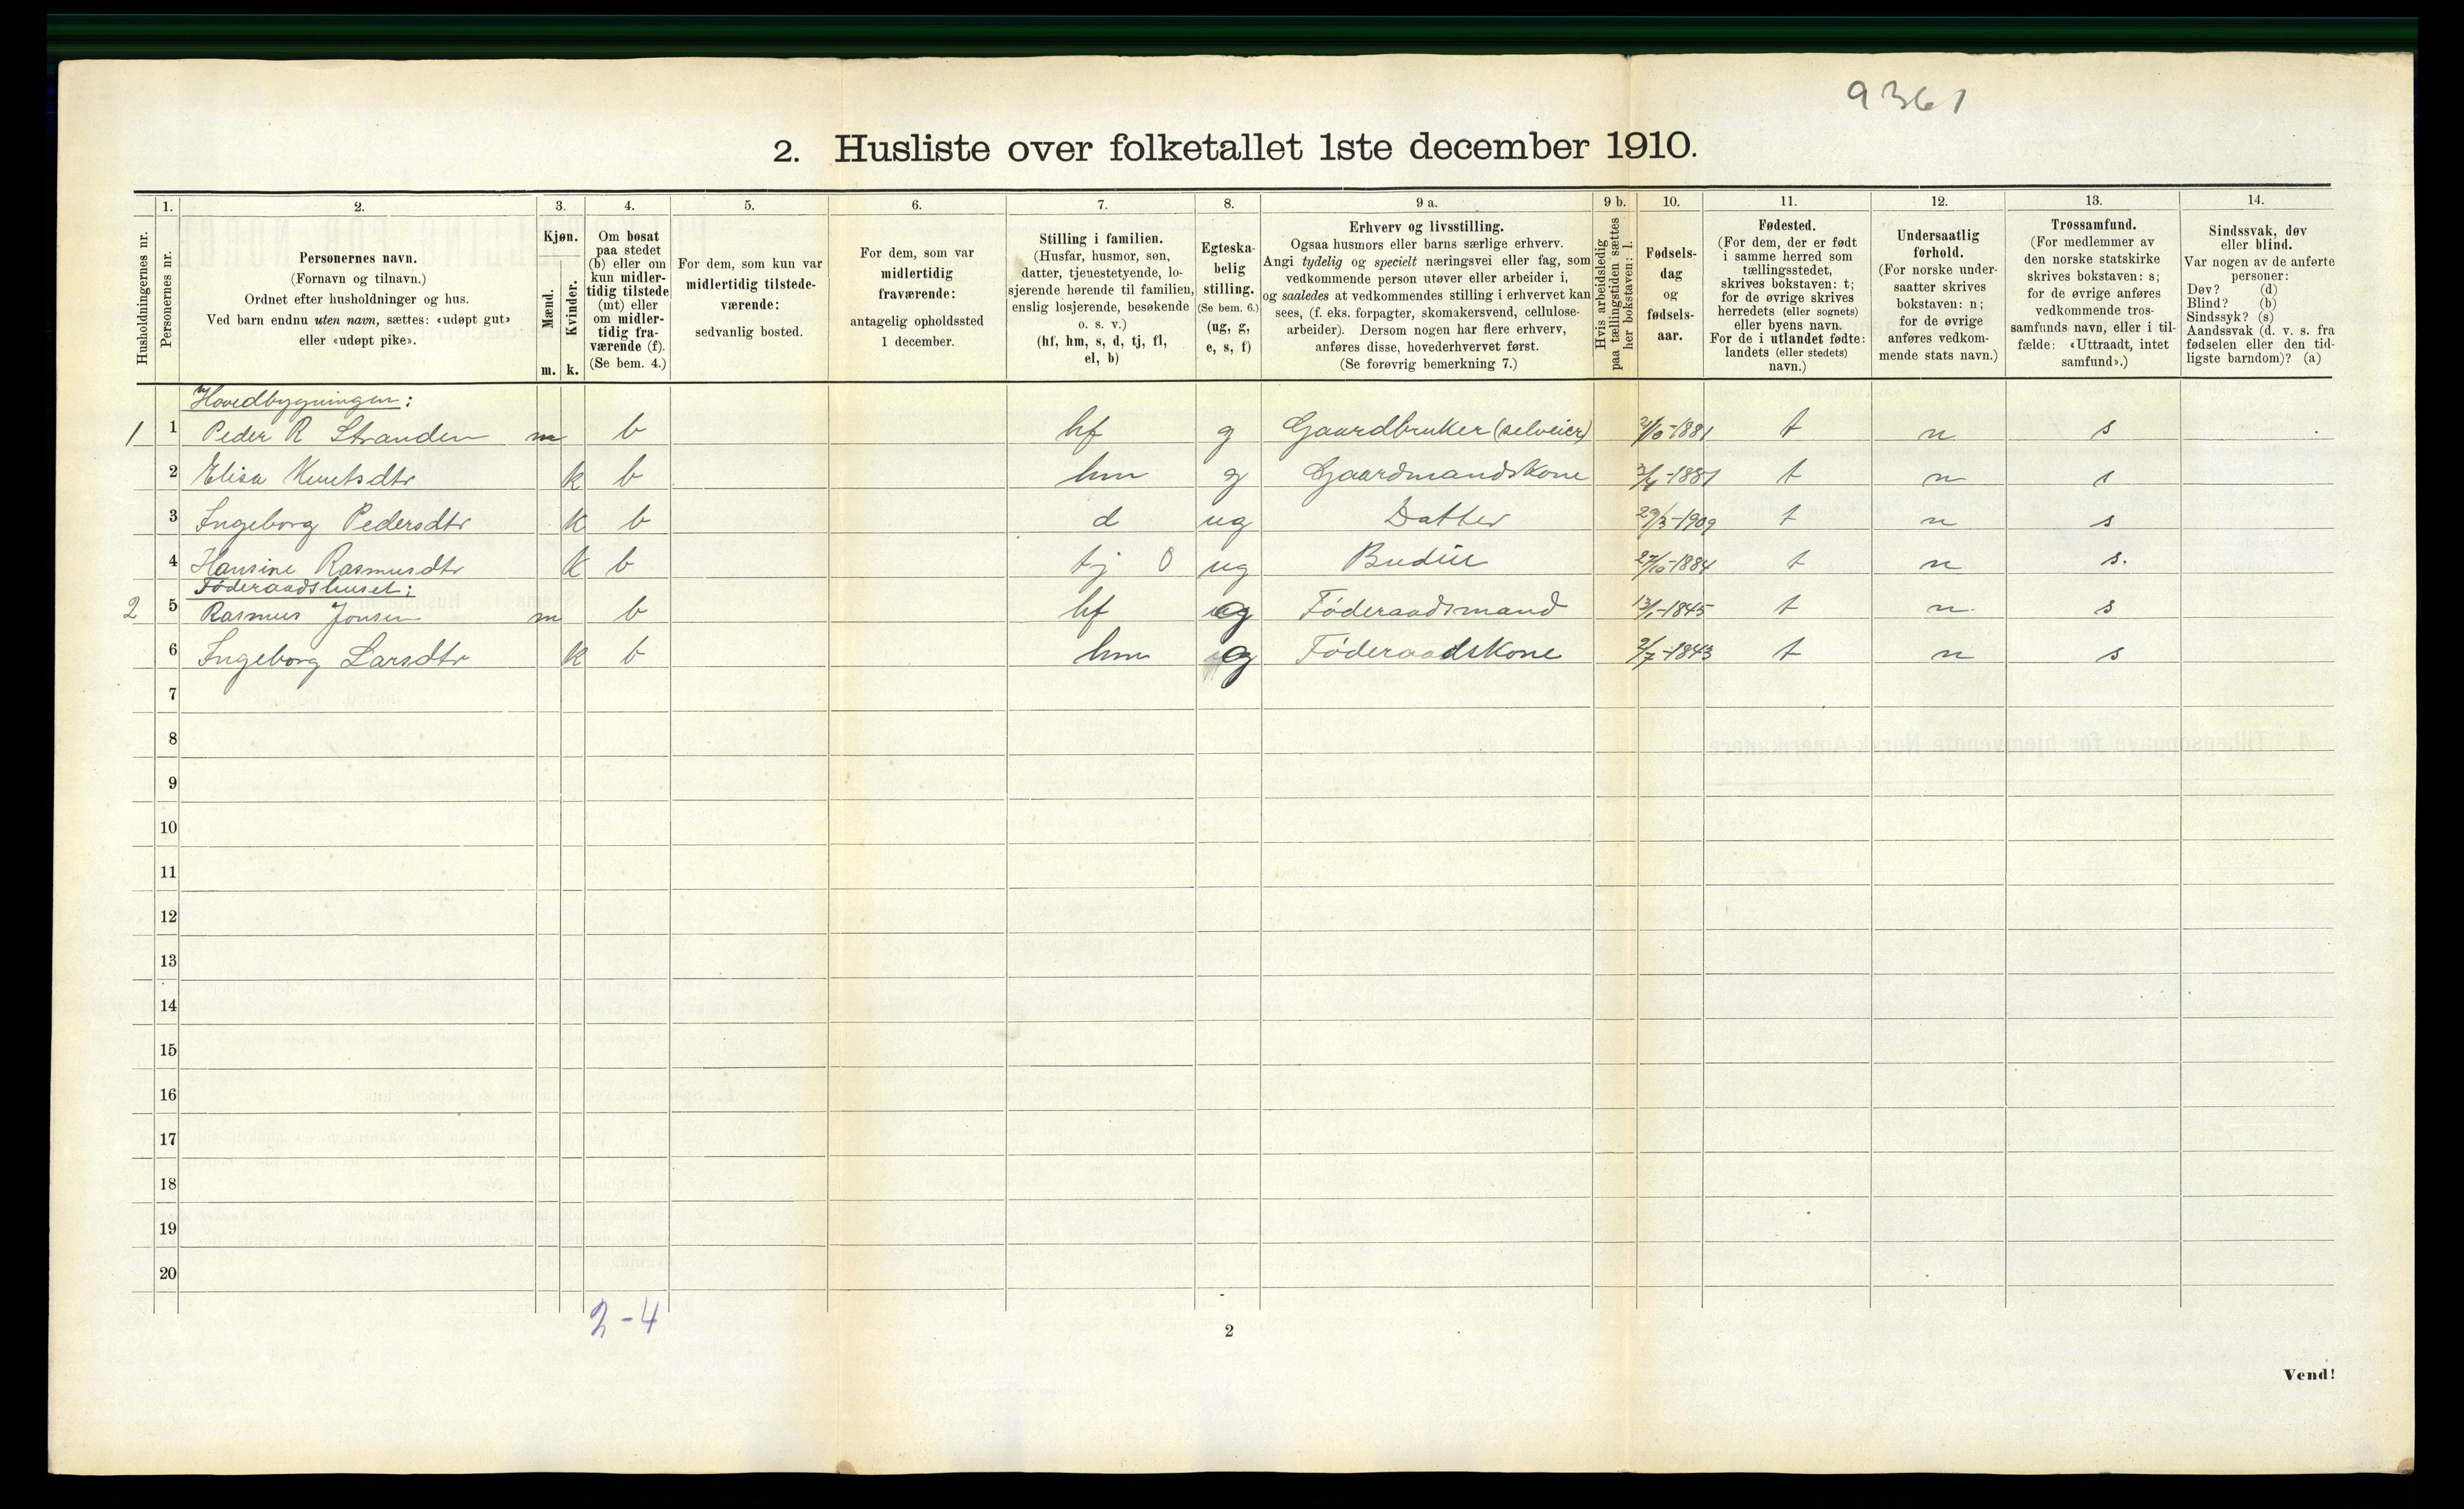 9361
2. Husliste over folketallet 1ste december 1910.
Husholdningernes nr.
1.
Personernes nr.
2.
Personernes navn.
(Fornavn og tilnavn.)
Ordnet efter husholdninger og hus.
Ved barn endnu uten navn, sættes: «udøpt gut»
eller «udøpt pike».
3.
Kjøn.
Mænd.
Kvinder.
m.
k.
4.
Om bosat
paa stedet
(b) eller om
kun midler-
tidig tilstede
(mt) eller
om midler-
tidig fra-
værende (f).
(Se bem. 4.)
5.
For dem, som kun var
midlertidig tilstede-
værende:
sedvanlig bosted.
6.
For dem, som var
midlertidig
fraværende:
antagelig opholdssted
1 december.
7.
Stilling i familien.
(Husfar, husmor, søn,
datter, tjenestetyende, lo-
sjerende hørende til familien,
enslig losjerende, besøkende
o. s. v.)
(hf, hm, s, d, tj, fl,
el, b)
8.
Egteska-
belig
stilling.
(Se bem. 6.)
(ug, g,
e, s, f)
9 a.
Erhverv og livsstilling.
Ogsaa husmors eller barns særlige erhverv.
Angi tydelig og specielt næringsvei eller fag, som
vedkommende person utøver eller arbeider i,
og saaledes at vedkommendes stilling i erhvervet kan
sees, (f. eks. forpagter, skomakersvend, cellulose-
arbeider). Dersom nogen har flere erhverv,
anføres disse, hovederhvervet først.
(Se forøvrig bemerkning 7.)
9 b.
Hvis arbeidsledig
paa tællingstiden sættes
her bokstaven: l.
10.
Fødsels-
dag
og
fødsels-
aar.
11.
Fødested.
(For dem, der er født
i samme herred som
tællingsstedet,
skrives bokstaven: t;
for de øvrige skrives
herredets (eller sognets)
eller byens navn.
For de i utlandet fødte:
landets (eller stedets)
navn.)
12.
Undersaatlig
forhold.
(For norske under-
saatter skrives
bokstaven: n;
for de øvrige
anføres vedkom-
mende stats navn.)
13.
Trossamfund.
(For medlemmer av
den norske statskirke
skrives bokstaven: s;
for de øvrige anføres
vedkommende tros-
samfunds navn, eller i til-
fælde: «Uttraadt, intet
samfund».)
14.
Sindssvak, døv
eller blind.
Var nogen av de anførte
personer:
Døv? (d)
Blind? (b)
Sindssyk? (s)
Aandssvak (d. v. s. fra
fødselen eller den tid-
ligste barndom)? (a)
Hovedbygningen:
1 1 Peder R Stranden m b hf g Gaardbruker (selveier) 2/10-1881 t n s
2 Elisa Knutsdtr k b hm g Gaardmandskone 3/4-1881 t n s
3 Ingeborg Pedersdtr k b d ug Datter 29/3-1909 t n s
4 Hansine Rasmusdtr k b tj 0 ug Budeie 27/10-1884 t n s.
Føderaadshuset:
2 5 Rasmus Jonsen m b hf g Føderaadsmand 13/1-1845 t n s
6 Ingeborg Larsdtr k b hm g Føderaadskone 2/7-1843 t n s
7
8
9
10
11
12
13
14
15
16
17
18
19
20
2-4
2
Vend!